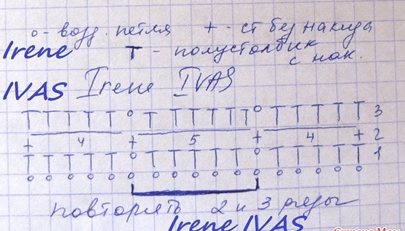 о - возд. петля + - ст без накида
Irene т - полустолбик
с нак.
IVAS Irene IVAS
T T T T T o T T T T T o T T T T T 3
+ 4 + 5 + 4 + 2
1
повторять 2 и 3 ряды
Irene IVAS